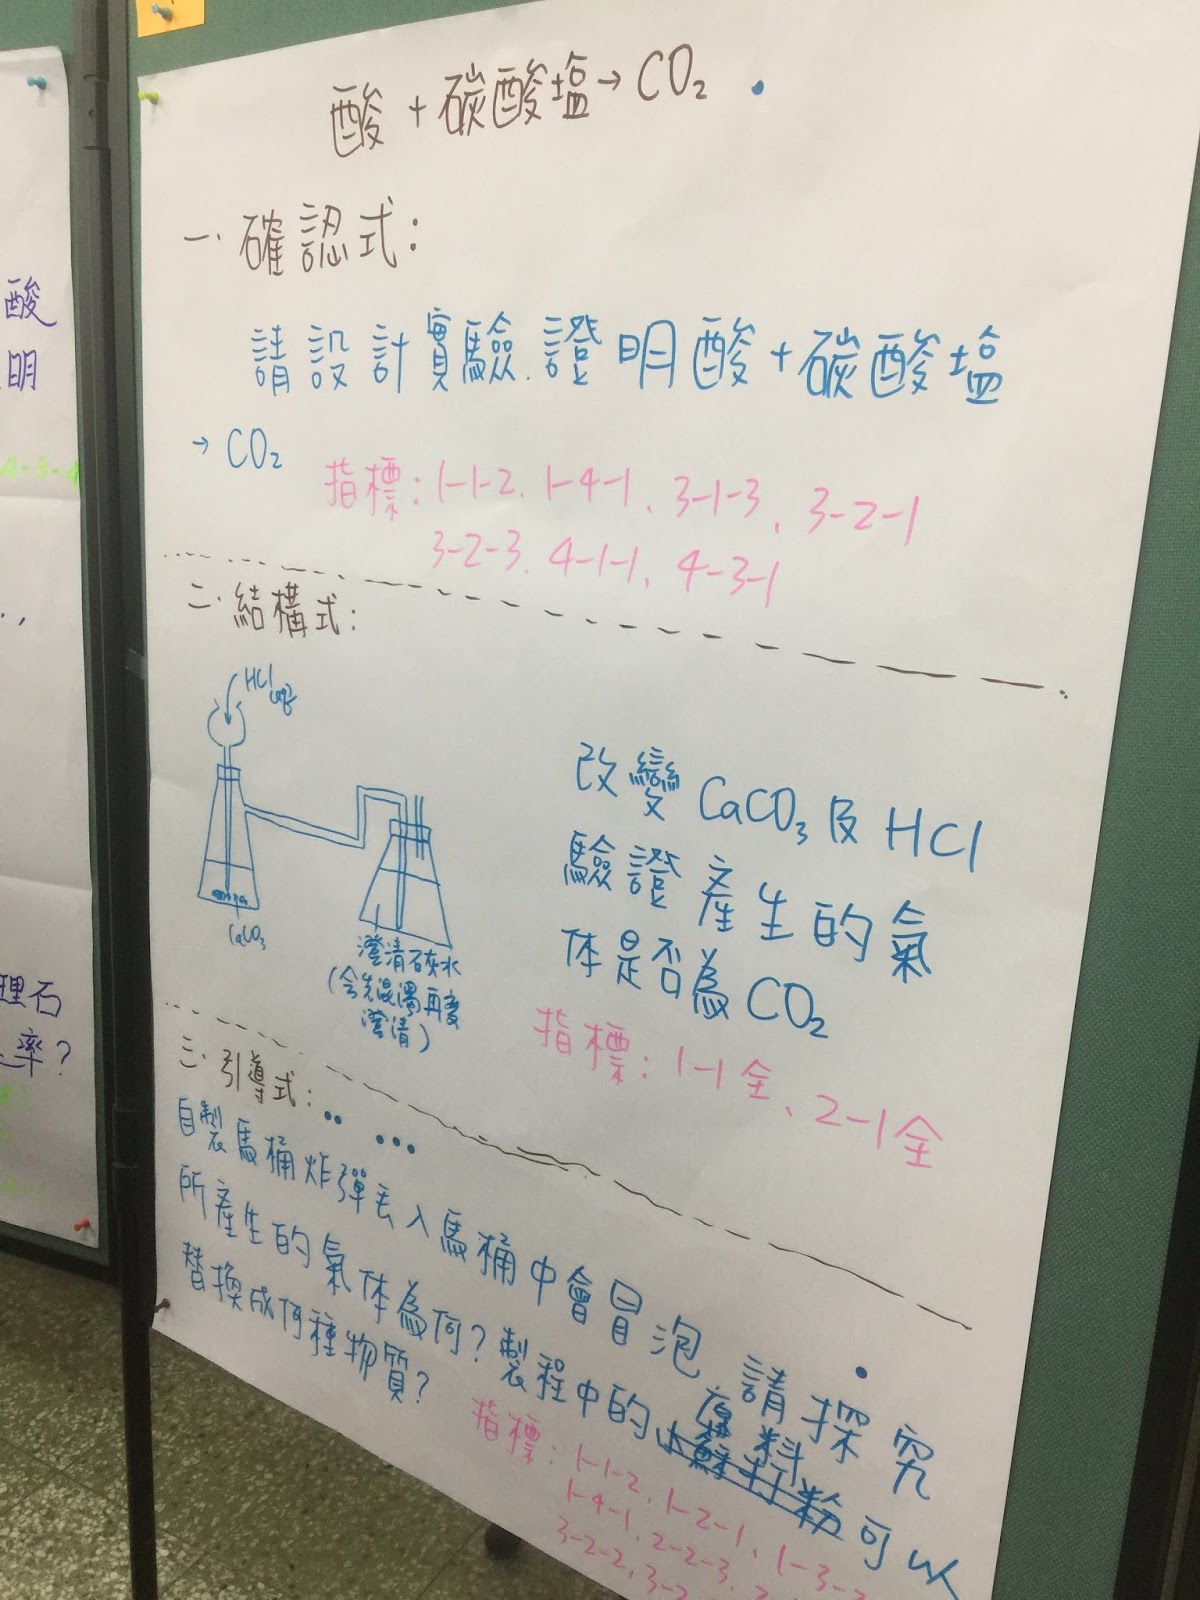 酸+碳酸塩→CO₂
一.確認式:
請設計實驗.證明酸+碳酸塩
→CO₂
指標:1-1-2、1-4-1、3-1-3、3-2-1
3-2-3、4-1-1、4-3-1
二.結構式:
HCl(aq)
CaCO₃
澄清石灰水
(会先混濁再變
澄清)
改變CaCO₃及HCl
驗證產生的氣
体是否為CO₂
指標:1-1全、2-1全
三.引導式:
自製馬桶炸彈丟入馬桶中會冒泡.請探究
所產生的氣体為何?製程中的原料可以
替換成何種物質?
指標:1-1-2、1-2-1、1-3-2
1-4-1、2-2-3、
3-2-2、3-2
酸
明
4-3-4
理石
率?